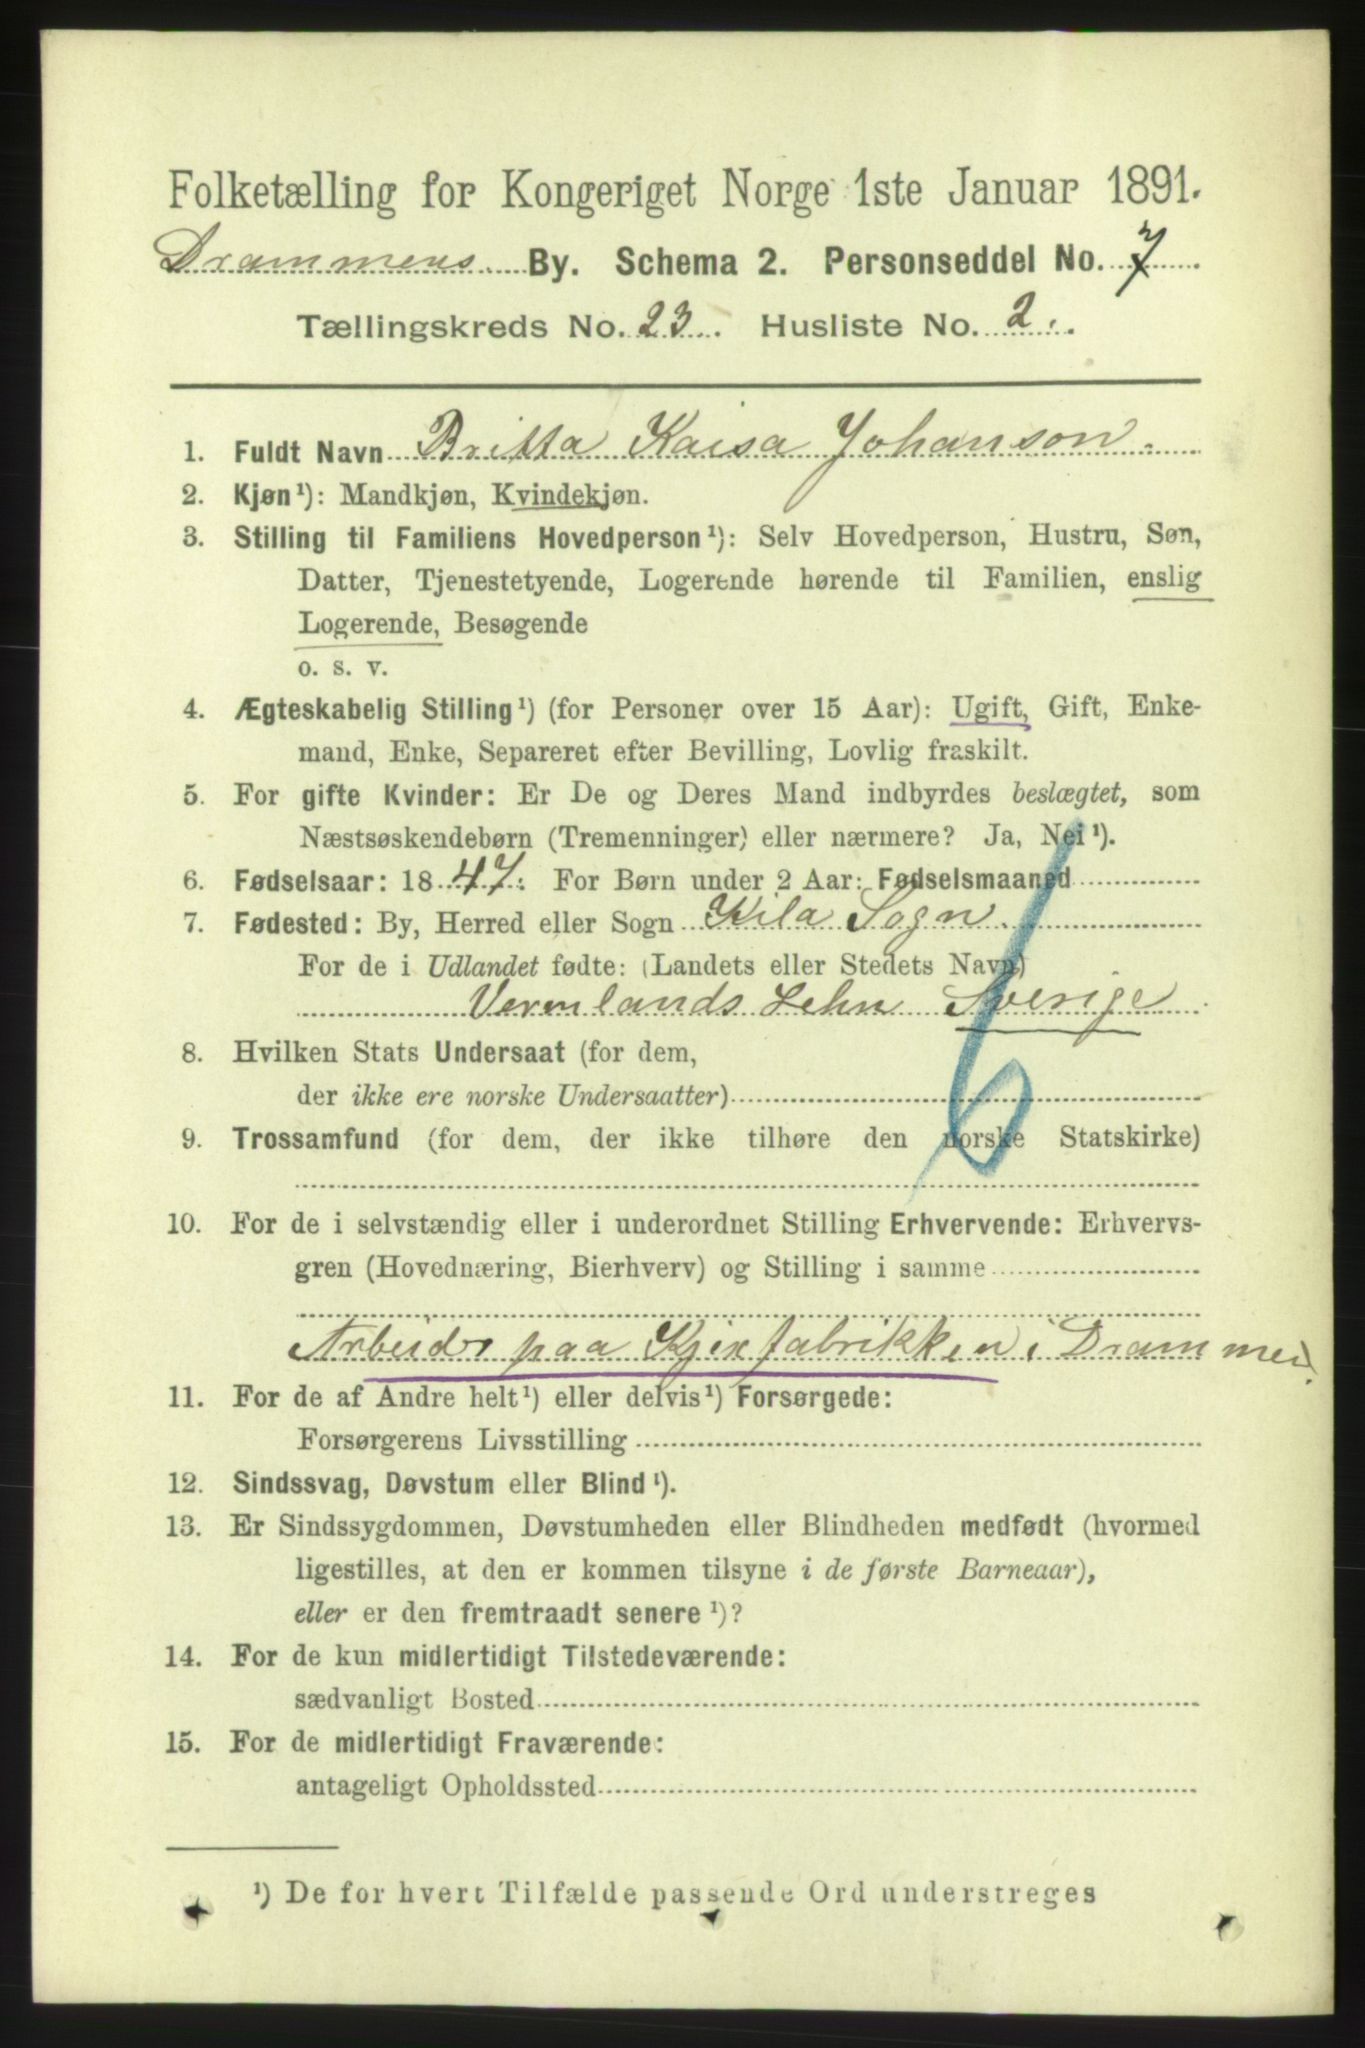 Folketælling for Kongeriget Norge 1ste Januar 1891.
Drammens By. Schema 2. Personseddel No. 7
Tællingskreds No. 23. Husliste No. 2.
1. Fuldt Navn Britta Kaisa Johanson.
2. Kjøn ¹): Mandkjøn, Kvindekjøn.
3. Stilling til Familiens Hovedperson ¹): Selv Hovedperson, Hustru, Søn,
Datter, Tjenestetyende, Logerende hørende til Familien, enslig
Logerende, Besøgende
o. s. v.
4. Ægteskabelig Stilling ¹) (for Personer over 15 Aar): Ugift, Gift, Enke-
mand, Enke, Separeret efter Bevilling, Lovlig fraskilt.
5. For gifte Kvinder: Er De og Deres Mand indbyrdes beslægtet, som
Næstsøskendebørn (Tremenninger) eller nærmere? Ja, Nei ¹).
6. Fødselsaar: 1847. For Børn under 2 Aar: Fødselsmaaned
7. Fødested: By, Herred eller Sogn Kila Sogn.
For de i Udlandet fødte: (Landets eller Stedets Navn)
Vermlands Lehn Sverige
8. Hvilken Stats Undersaat (for dem,
der ikke ere norske Undersaatter)
9. Trossamfund (for dem, der ikke tilhøre den norske Statskirke)
10. For de i selvstændig eller i underordnet Stilling Erhvervende: Erhvervs-
gren (Hovednæring, Bierhverv) og Stilling i samme
paa i Drammen.
11. For de af Andre helt ¹) eller delvis ¹) Forsørgede:
Forsørgerens Livsstilling
12. Sindssvag, Døvstum eller Blind ¹).
13. Er Sindssygdommen, Døvstumheden eller Blindheden medfødt (hvormed
ligestilles, at den er kommen tilsyne i de første Barneaar),
eller er den fremtraadt senere ¹)?
14. For de kun midlertidigt Tilstedeværende:
sædvanligt Bosted
15. For de midlertidigt Fraværende:
antageligt Opholdssted
¹) De for hvert Tilfælde passende Ord understreges